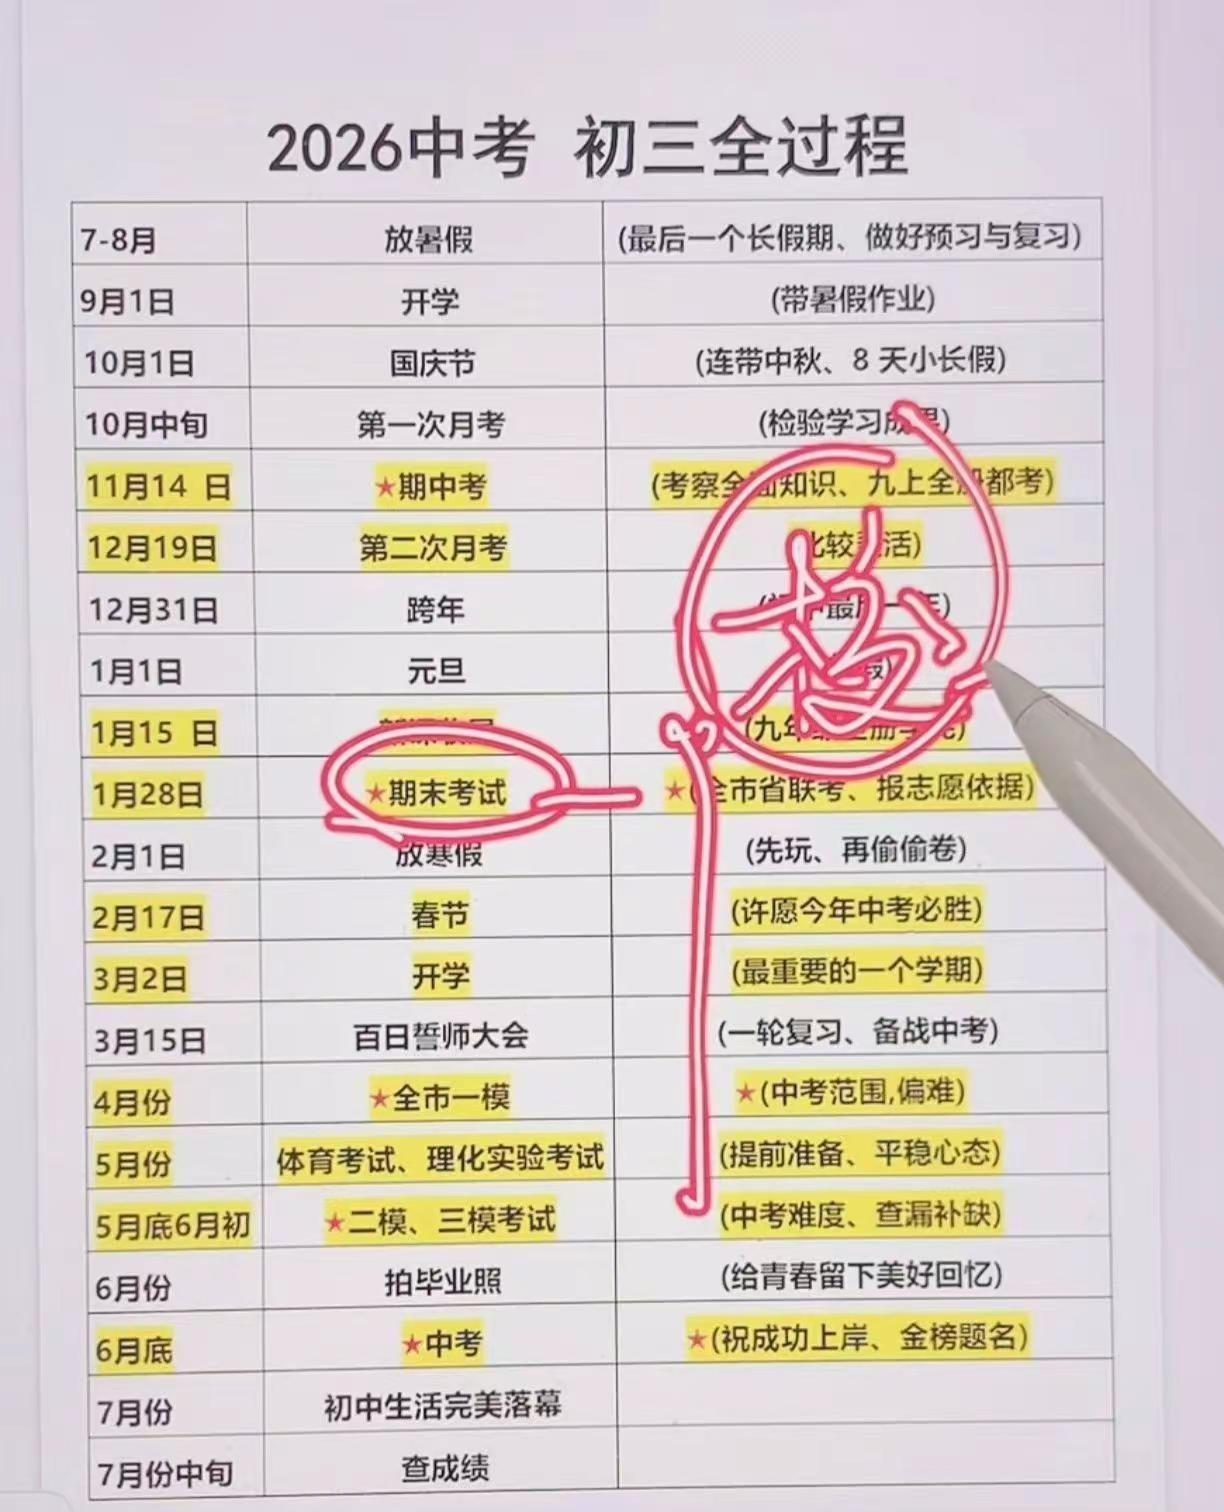 2026中考 初三全过程
7-8月 放暑假 (最后一个长假期、做好预习与复习)
9月1日 开学 (带暑假作业)
10月1日 国庆节 (连带中秋、8 天小长假)
10月中旬 第一次月考 (检验学习成果)
11月14 日 ★期中考 (考察全面知识、九上全册都考)
12月19日 第二次月考 比较灵活)
12月31日 跨年 (初中最后一年)
1月1日 元旦 假)
1月15 日 (九年级全册学完)
1月28日 ★期末考试 ★(全市省联考、报志愿依据)
2月1日 放寒假 (先玩、再偷偷卷)
2月17日 春节 (许愿今年中考必胜)
3月2日 开学 (最重要的一个学期)
3月15日 百日誓师大会 (一轮复习、备战中考)
4月份 ★全市一模 ★(中考范围,偏难)
5月份 体育考试、理化实验考试 (提前准备、平稳心态)
5月底6月初 ★二模、三模考试 (中考难度、查漏补缺)
6月份 拍毕业照 (给青春留下美好回忆)
6月底 ★中考 ★(祝成功上岸、金榜题名)
7月份 初中生活完美落幕
7月份中旬 查成绩